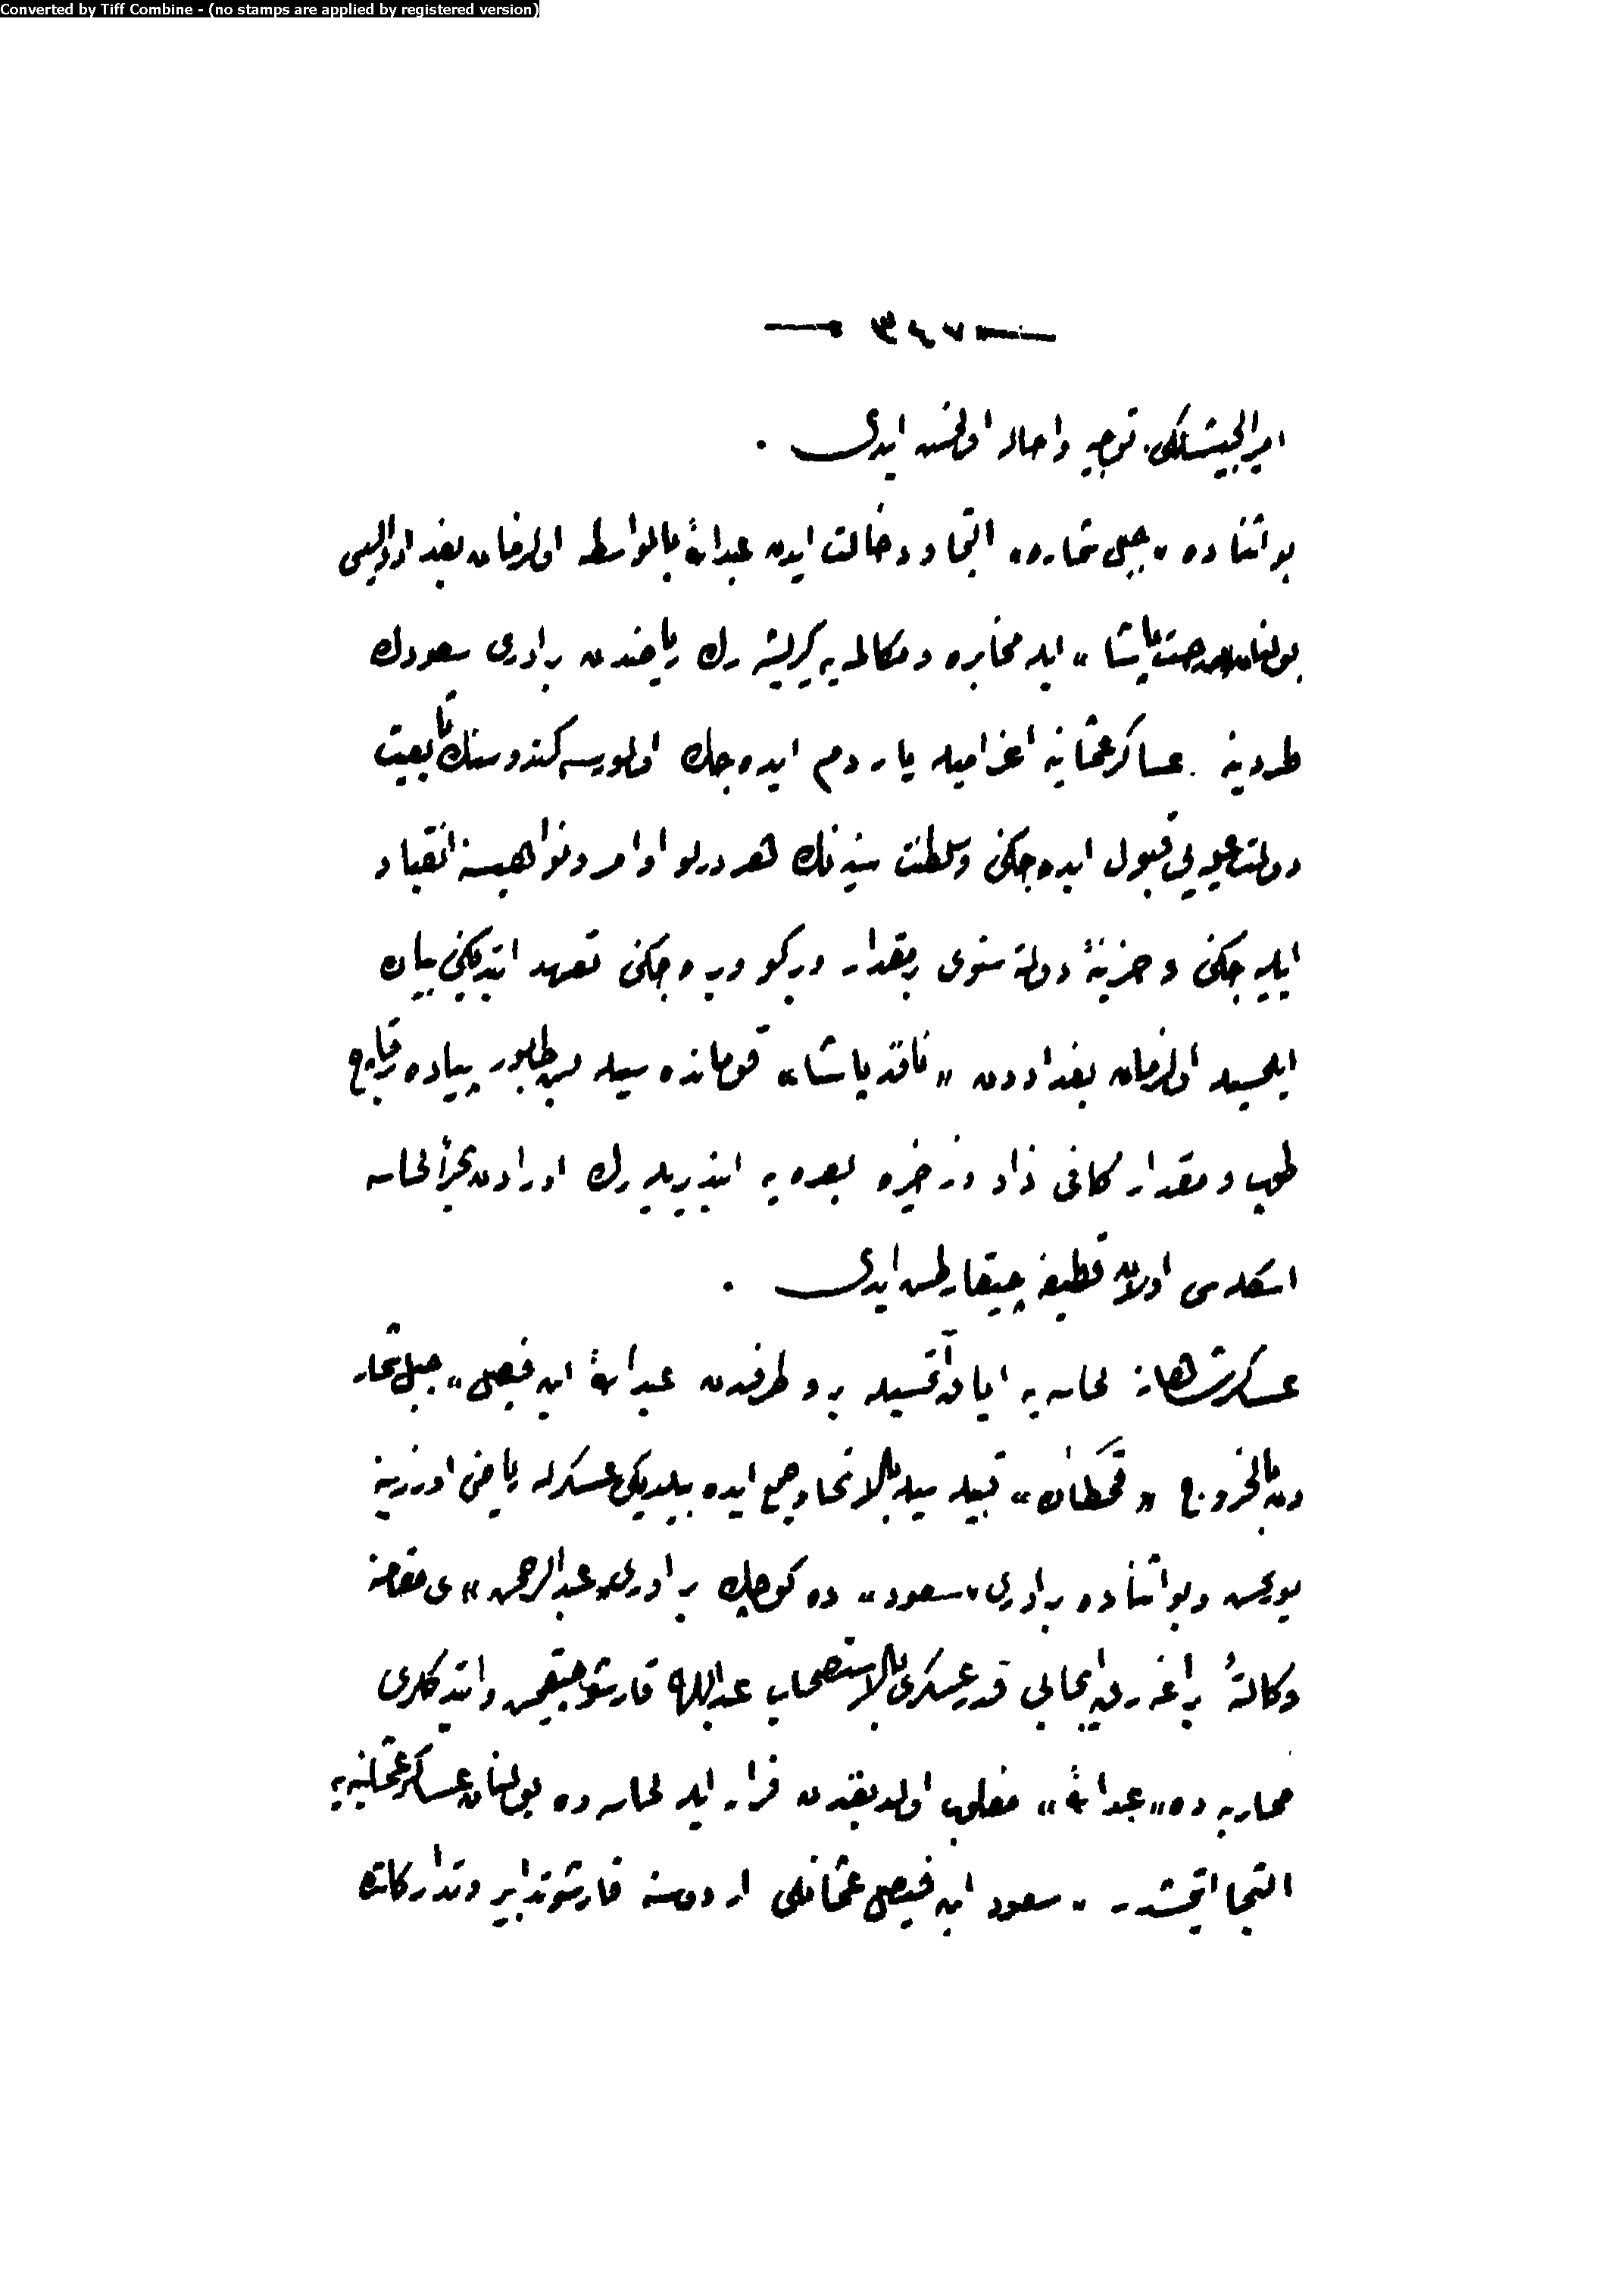 Converted by Tiff Combine - (no stamps are applied by registered version)
— ٣٤٧ —
امیر الجیشلکی توجیه و احاله اولنمش ایدی .
بو اثناده « جبل شمار ده » التجا و دخالت ایدن عبدالله بالواسطه اولزمان بغداد والیسی
بولنان مدحت پاشا » ایله مخابره و مکالمه یه کریشه رك ریاضدن برادری سعودك
طردینه عساکر عثمانیه اعزامیله یاردم ایده جك اولورسه کندوسنك تابعیت
دولت علیه یی قبول ایده جکنی و سلطنت سنیه نك هر درلو اوامر و نواهیسنه انقیاد
ایلیه جکنی و خزینهٔ دولته سنوی بر مقدار ویرکو ویره جکنی تعهد ایتدیکنی بیان
ایلمسیله اولزمان بغداددن « نافذ پاشا » قومانده سیله بش طابور پیاده و قاچ
طوب و مقدار کافی زاد و ذخیره بصره یه ایندیریله رك اورادن بحراً لحسانك
اسکله سی اولان قطیفه چیقارلمش ایدی .
عسکر شاهانه لحسایه ایاق آتمسیله برو طرفدن عبدالله ابن فیصل » جبل شمار
دن بالخروج « قحطان » قبیله سیله بالاتحاد جمع ایده بیلدیکی عسکرله ریاض اوزرینه
یوریمش و بو اثناده برادری « سعود » ده کوچك برادری « عبدالرحمن » ی مقامنه
وکالةً براغه رق ایجابی قدر عسکری بالاستصحاب عبدالله قارشو چیقمش و ایتدکلری
محاربه ده « عبدالله » مغلوب اولدیغندن فرار ایله لحساده بولنان عساکر عثمانیه یه
التجا ایتمشدر . سعود ابن فیصل عثمانلی اردوسنه قارشو تدابیر و تدارکاته